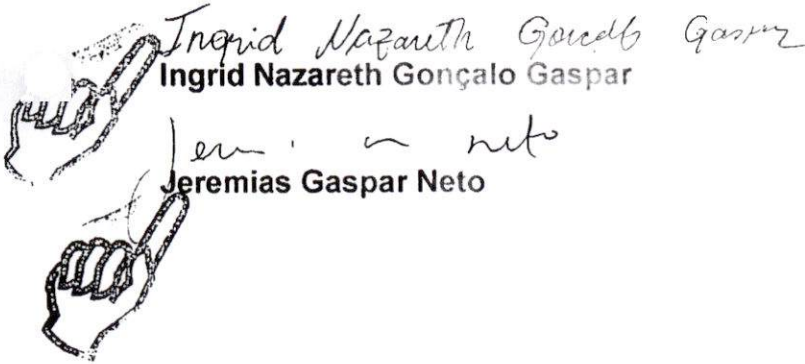 Ingrid Nazareth Gonçalo Gaspar
Ingrid Nazareth Gonçalo Gaspar
neto
Jeremias Gaspar Neto